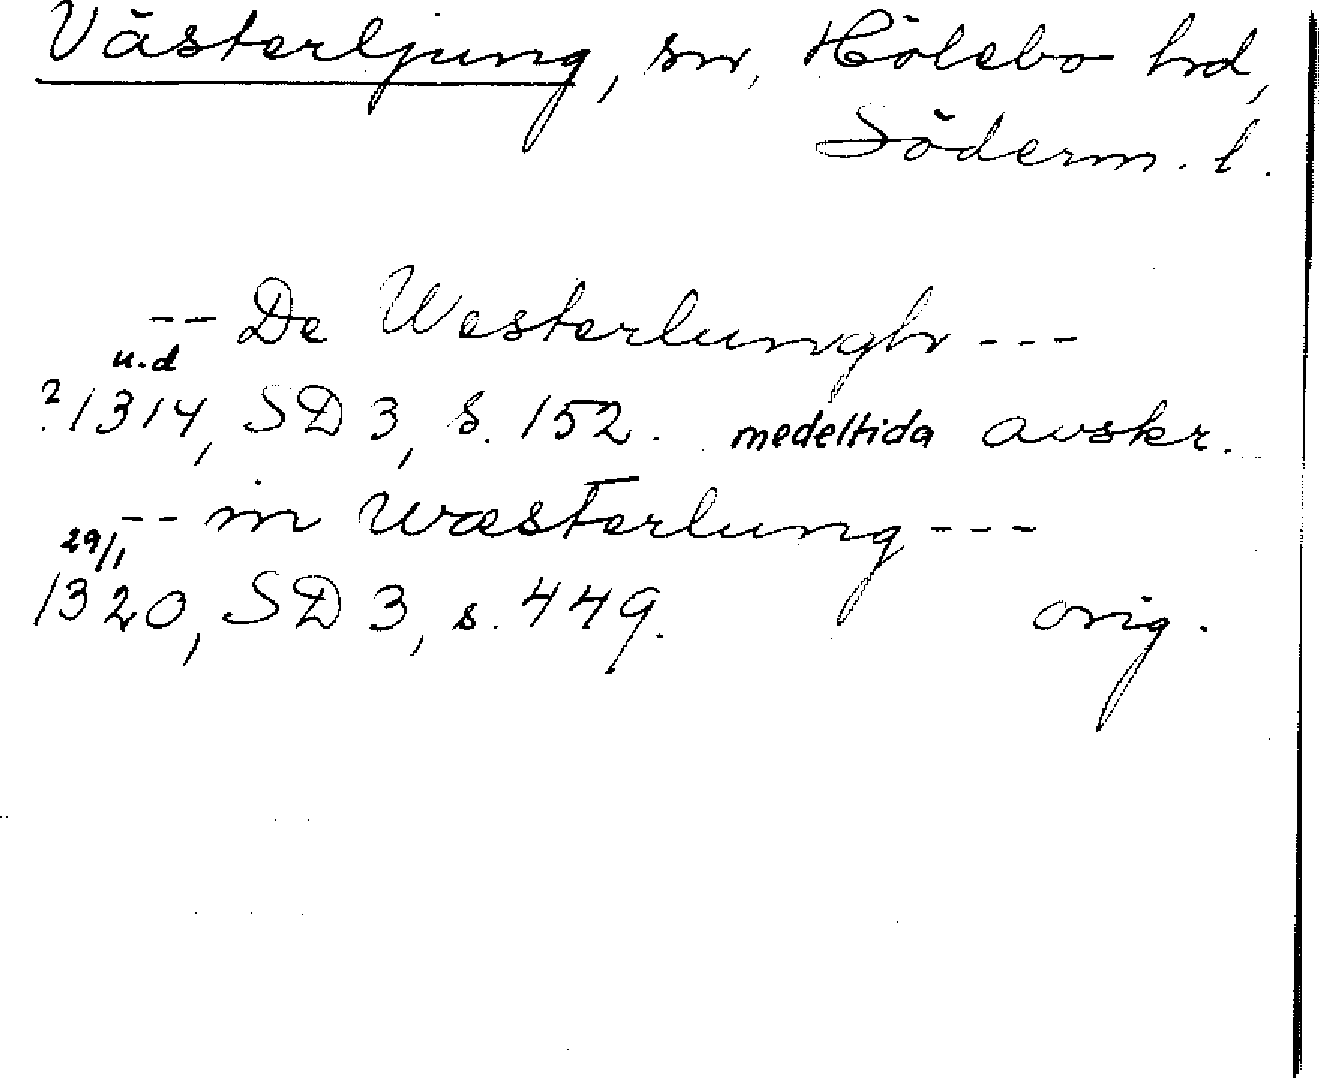 Västerljung, sn, Hölebo hd,
Söderm. l.
-- De Westerlungh ---
u.d
? 1314, SD 3, s. 152. medeltida avskr.
-- in Wæsterlung ---
29/1
1320, SD 3, s. 449. orig.